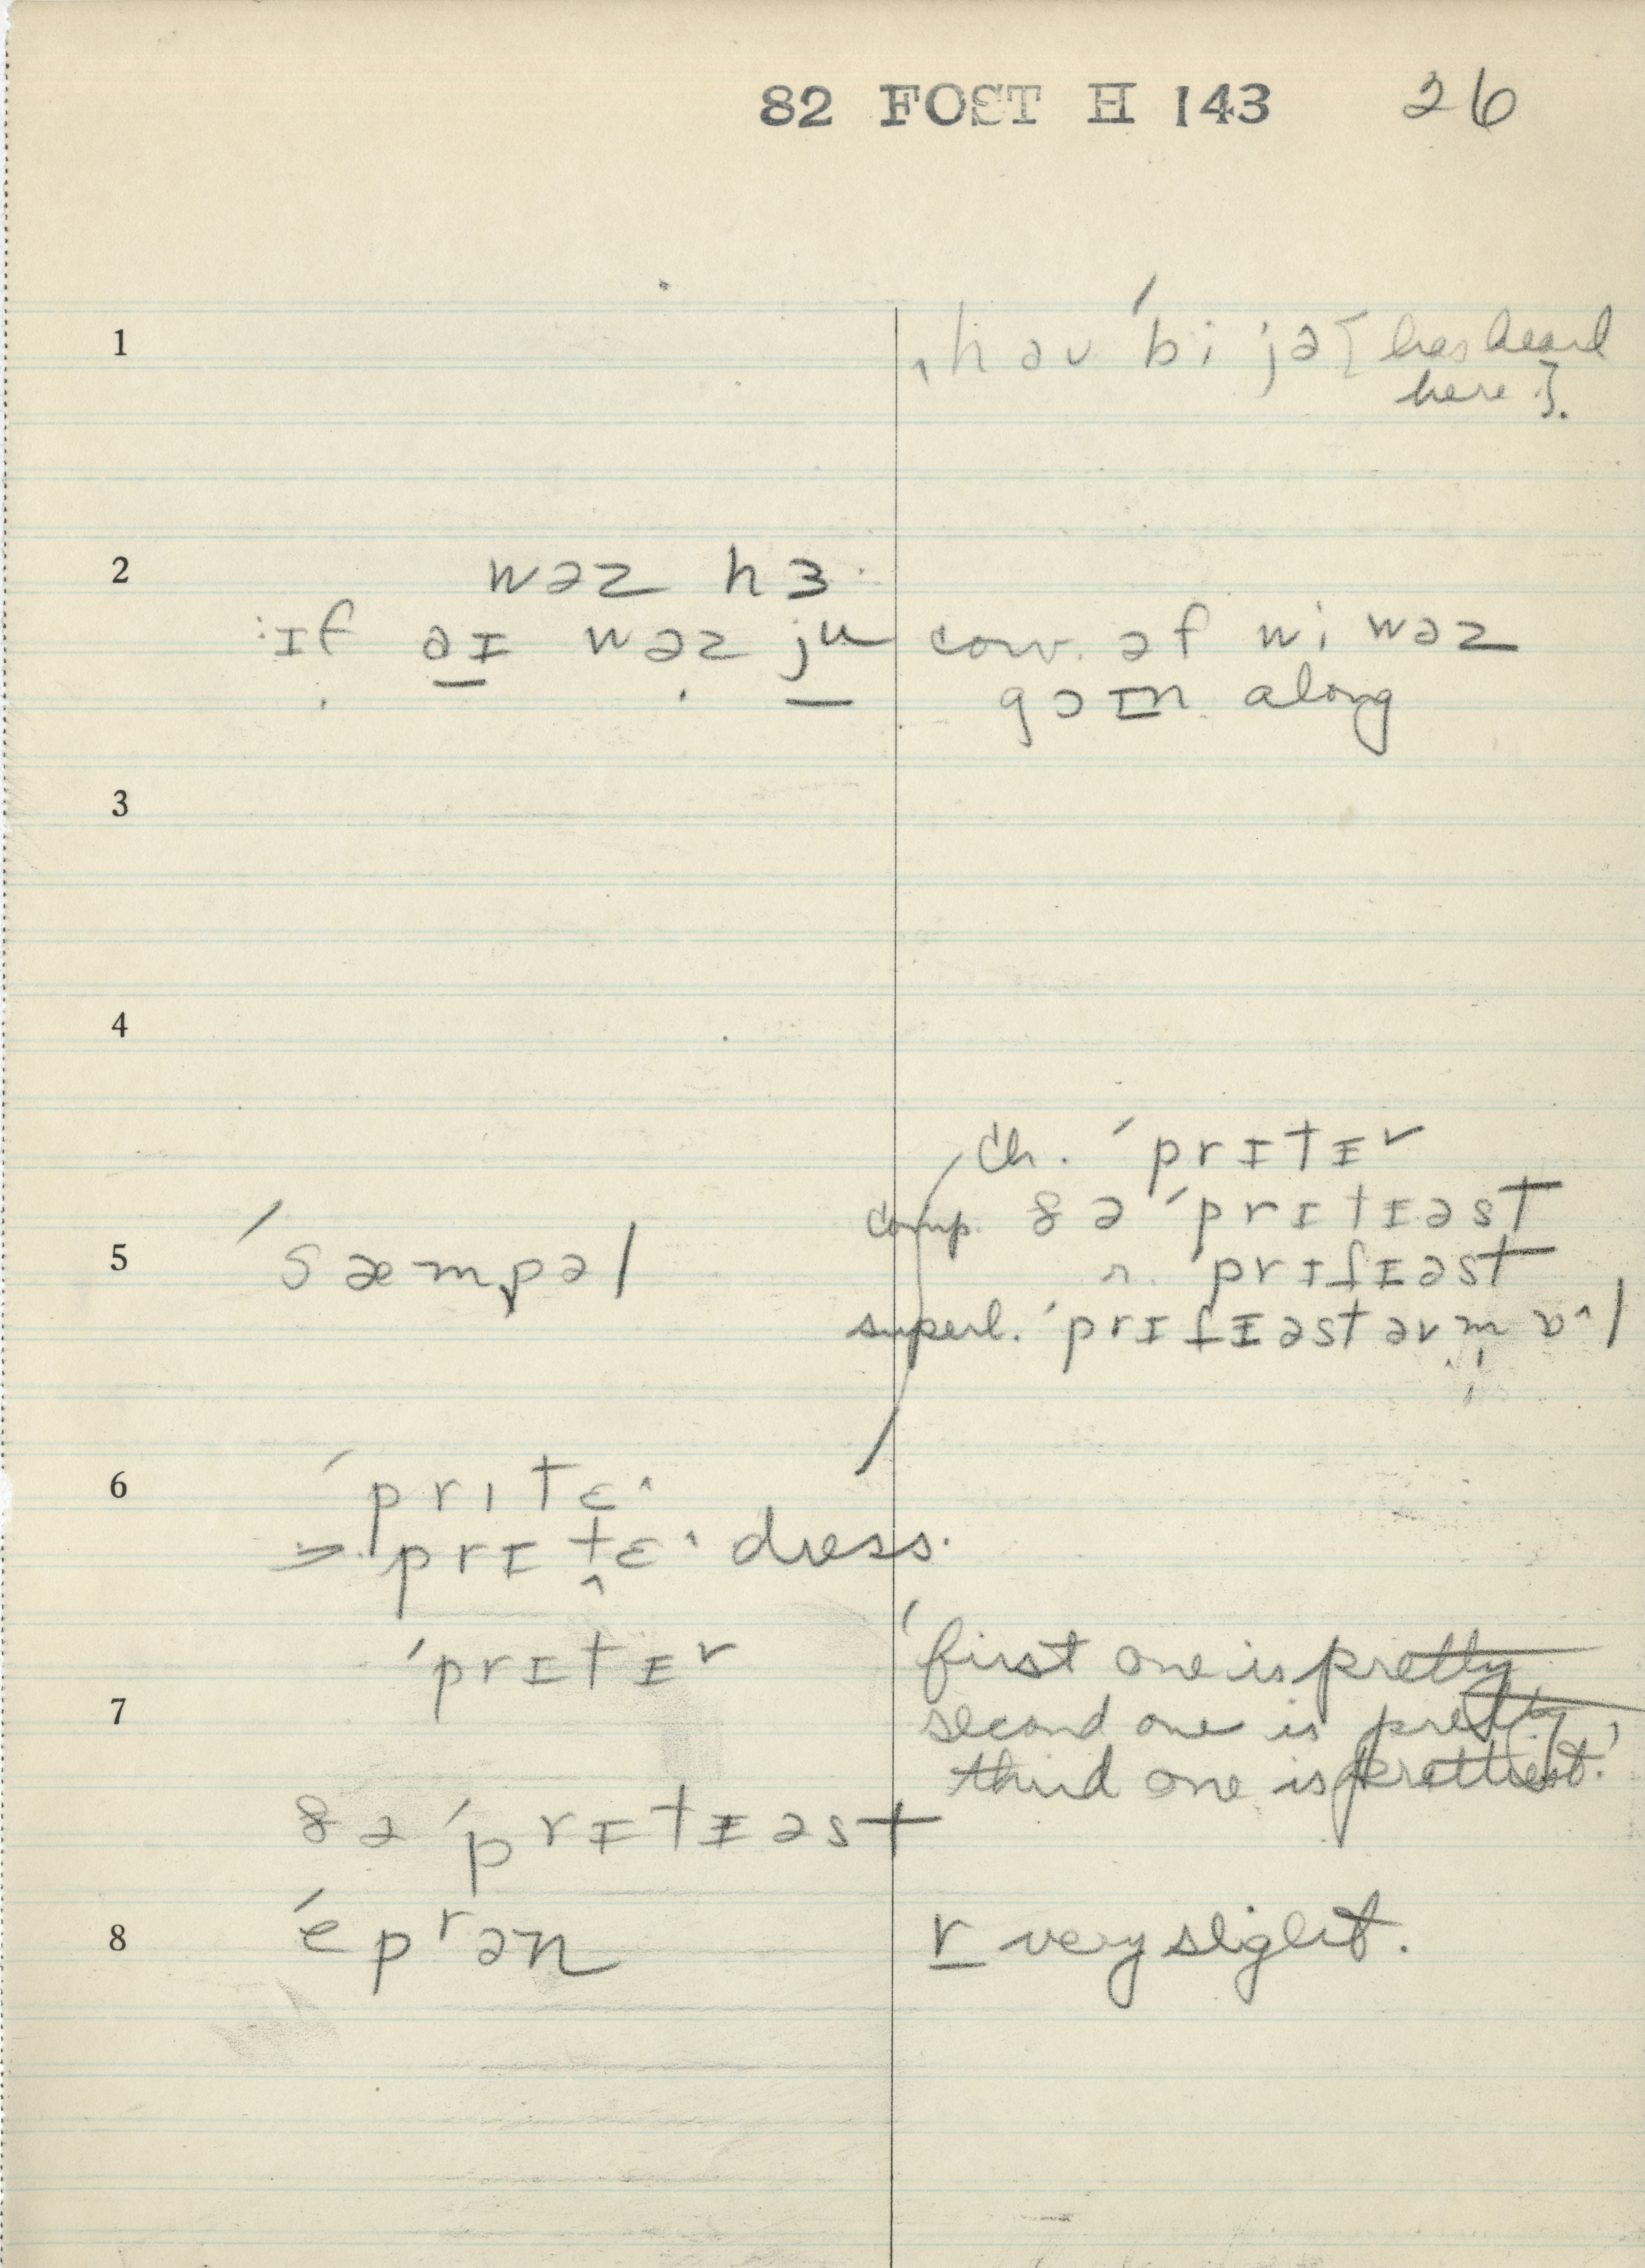 82 FOST H 143 26
1
həu ˈbi jə [has heard
here].
2
wəz hɜ·
ɪf əɪ wəz ju
conv. əf wi wəz
goɪn along
3
4
ch. ˈprɪtɪr
comp. ðə ˈprɪtɪəst
5
ˈsæmpəl
r. ˈprɪtɪəst
superl. ˈprɪtɪəst əv m ɒ^l
6
ˈprɪtɛ^
→ prɪtɛ^ dress.
ˈprɪtɪr
7
'first one is pretty
second one is pretty
third one is prettiest.'
ðə ˈprɪtɪəst
8
ˈepʳən
r very slight.